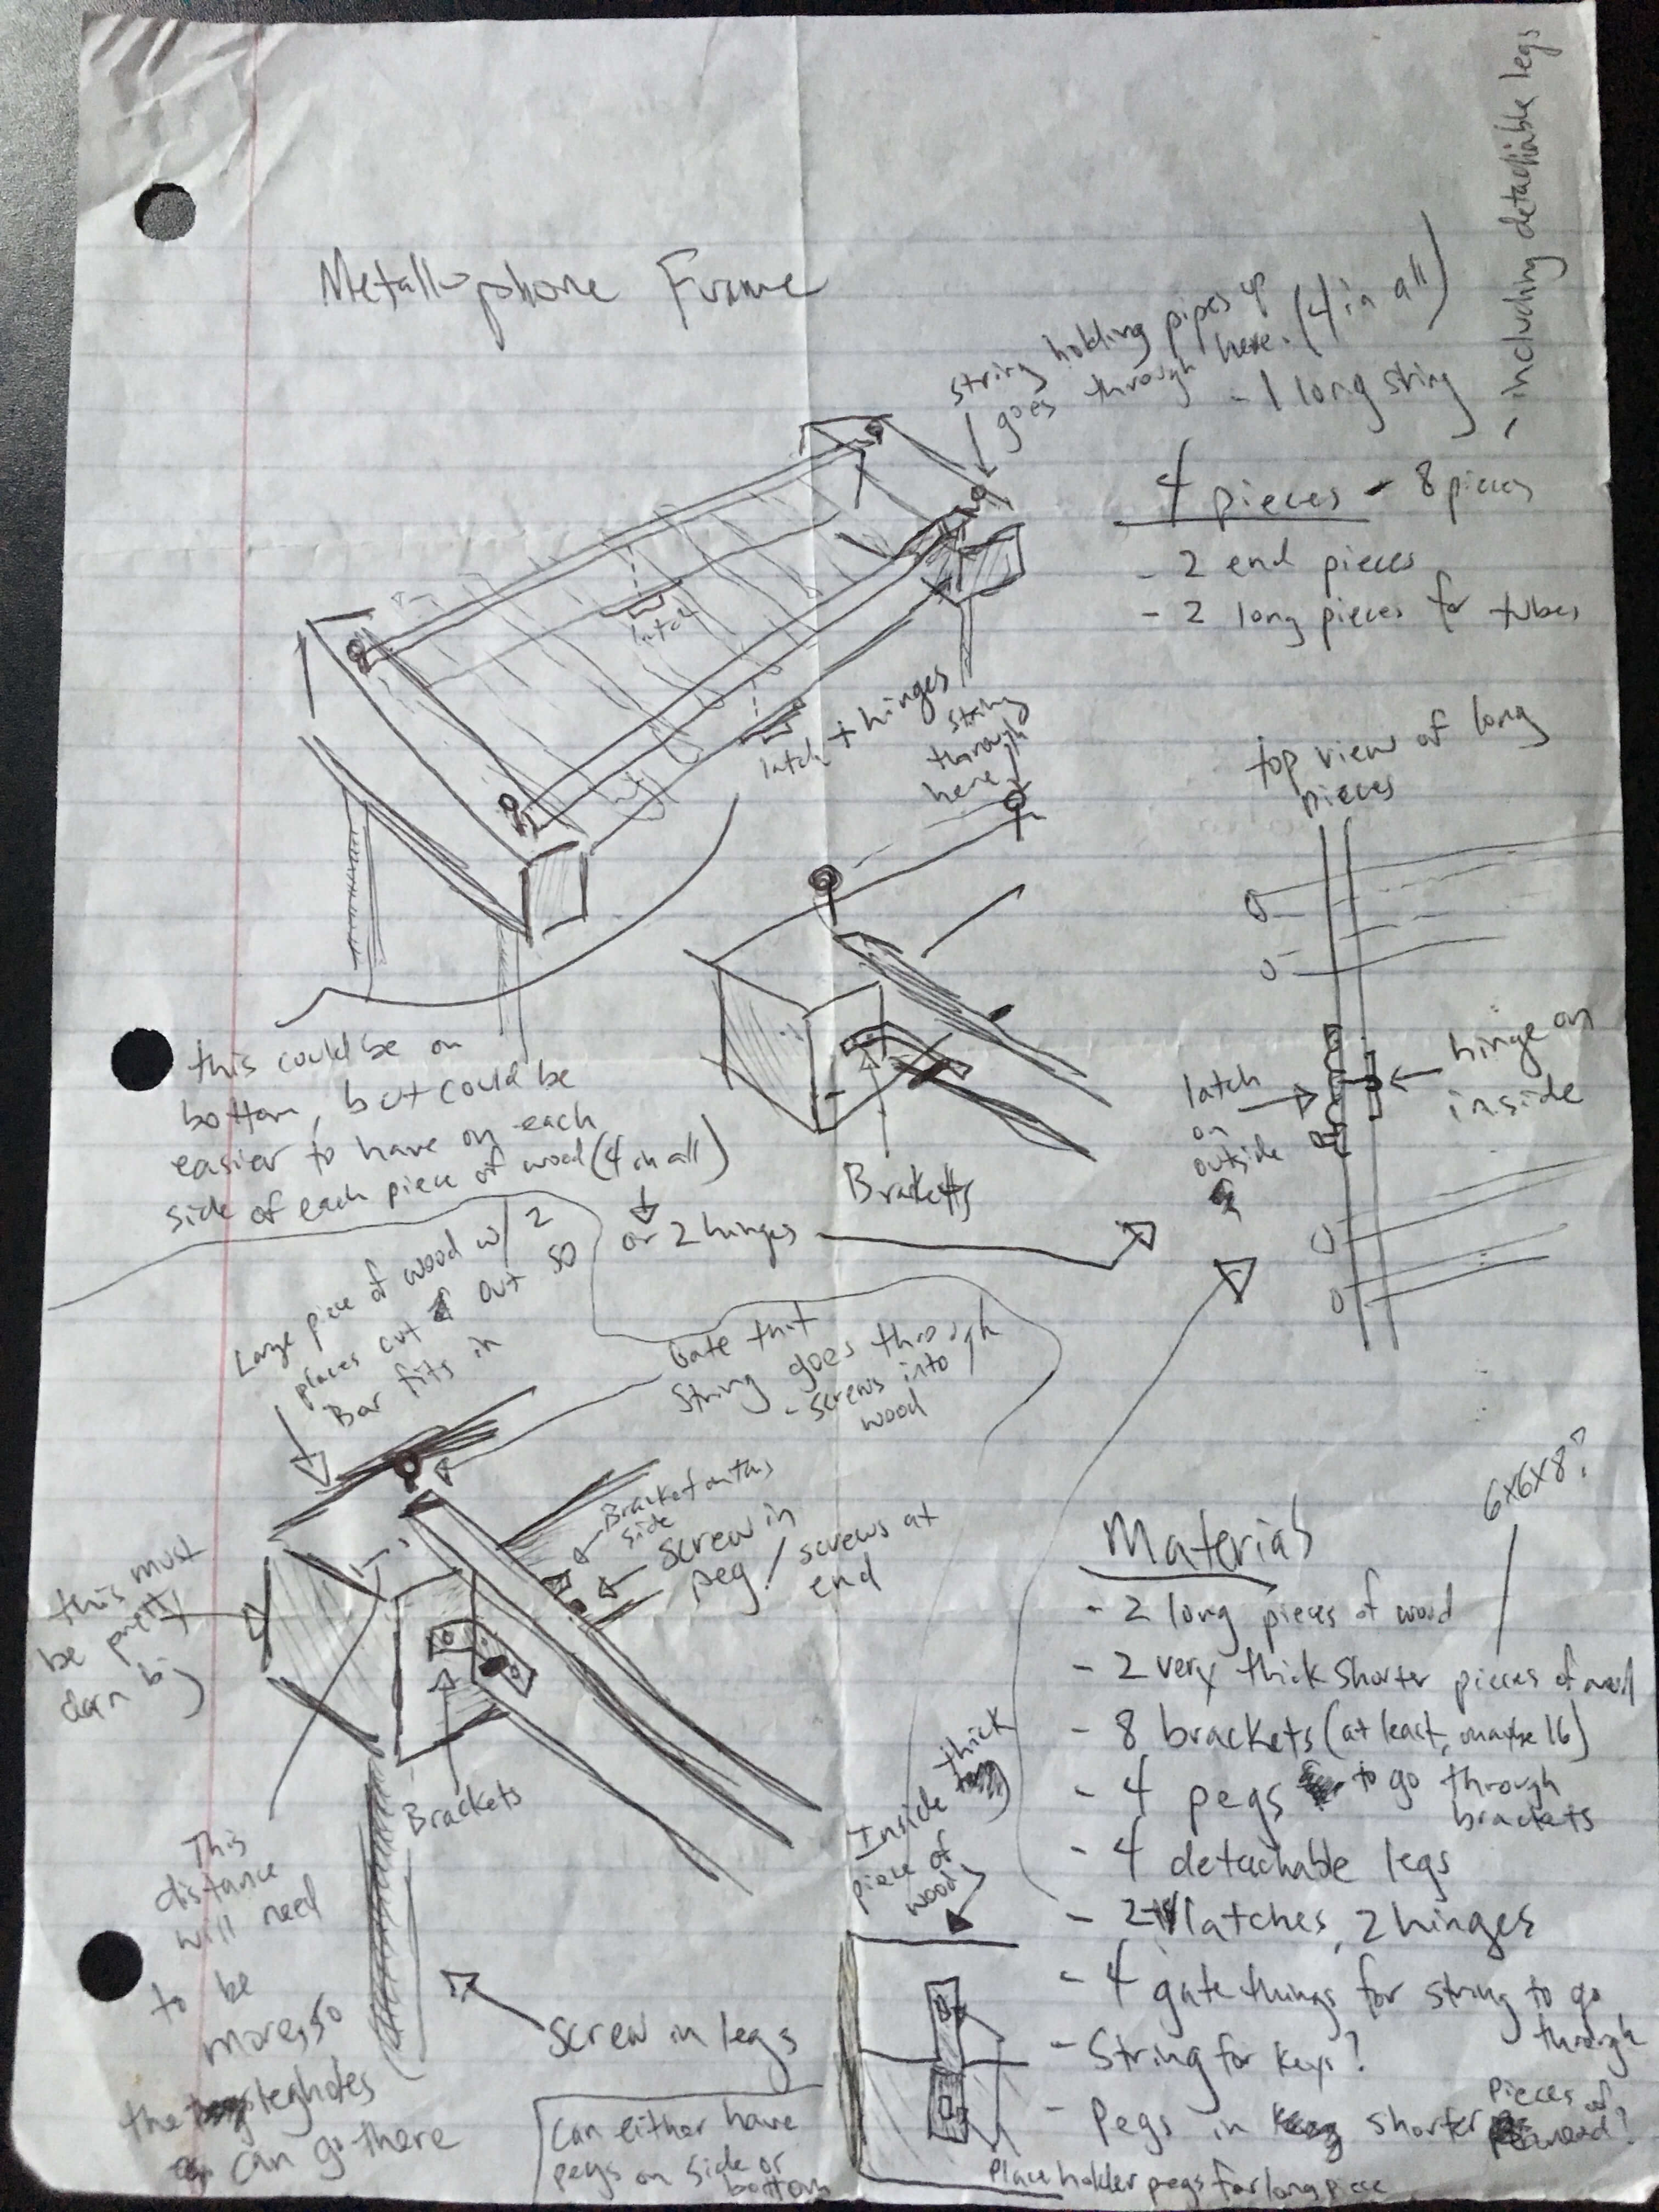 Metallophone Frame
string holding pipes up
goes through here. (4 in all)
- 1 long string
- including detachable legs
4 pieces - 8 pieces
- 2 end pieces
- 2 long pieces for tubes
latch
latch + hinges
string
through
here
top view of long
pieces
hinge on
inside
latch
on
outside
Brackets
this could be on
bottom, but could be
easier to have on each
side of each piece of wood (4 in all)
or 2 hinges
Large piece of wood w/ 2
places cut out so
Bar fits in
Gate that
string goes through
- screws into
wood
Bracket on this
side
Screw in
peg / screws at
end
this must
be pretty
darn big
Brackets
This
distance
will need
to be
more, so
the legholes
can go there
Screw in legs
Can either have
pegs on side or
bottom
Inside thick
piece of
wood
Place holder pegs for long piece
6x6x8?
Materials
- 2 long pieces of wood
- 2 very thick shorter pieces of wood
- 8 brackets (at least, maybe 16)
- 4 pegs to go through
brackets
- 4 detachable legs
- 2 latches, 2 hinges
- 4 gate things for string to go
through
- String for keys?
- Pegs in shorter pieces of
wood?